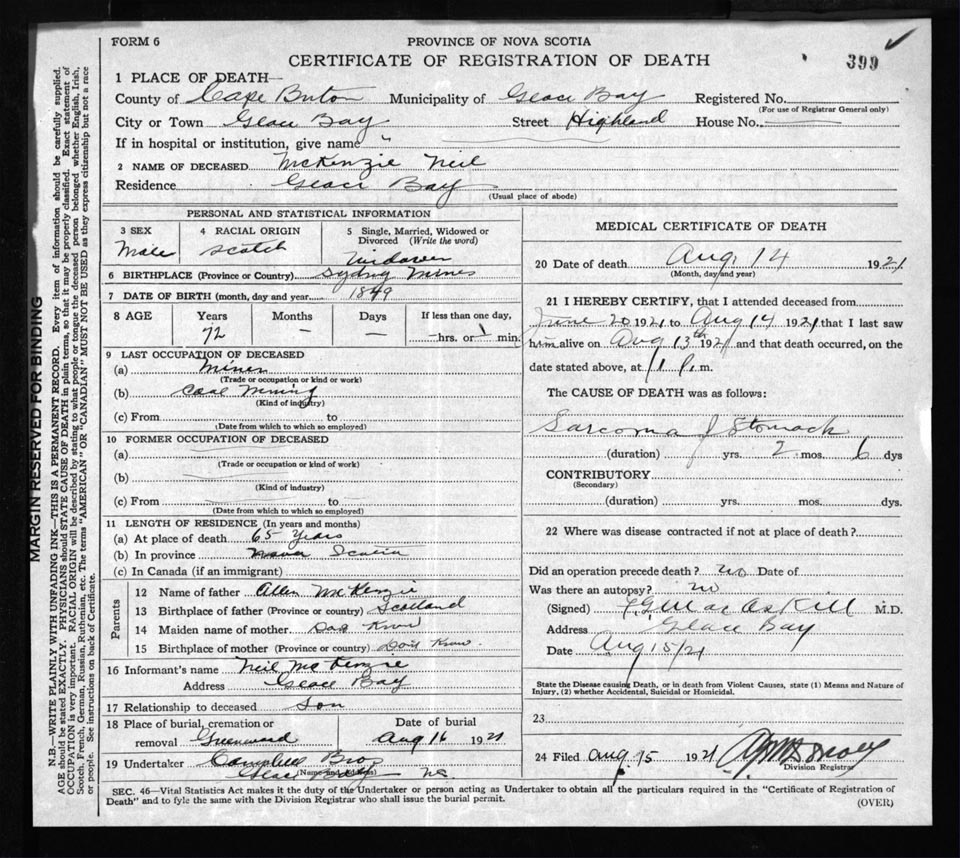 FORM 6
PROVINCE OF NOVA SCOTIA
CERTIFICATE OF REGISTRATION OF DEATH
399
1 PLACE OF DEATH—
County of Cape Breton Municipality of Glace Bay Registered No.
(For use of Registrar General only)
City or Town Glace Bay Street Highland House No.
If in hospital or institution, give name "
2 NAME OF DECEASED McKenzie Neil
Residence Glace Bay
(Usual place of abode)
PERSONAL AND STATISTICAL INFORMATION
3 SEX 4 RACIAL ORIGIN 5 Single, Married, Widowed or
Divorced (Write the word)
Male Scotch Widower
6 BIRTHPLACE (Province or Country) Sydney Mines
7 DATE OF BIRTH (month, day and year) 1849
8 AGE Years Months Days If less than one day,
72 — — hrs. or min.
9 LAST OCCUPATION OF DECEASED
(a) Miner
(Trade or occupation or kind or work)
(b) Coal Mining
(Kind of industry)
(c) From to
(Date from which to which so employed)
10 FORMER OCCUPATION OF DECEASED
(a)
(Trade or occupation or kind of work)
(b)
(Kind of industry)
(c) From to
(Date from which to which so employed)
11 LENGTH OF RESIDENCE (In years and months)
(a) At place of death 65 Years
(b) In province Nova Scotia
(c) In Canada (if an immigrant)
Parents
12 Name of father Allen McKenzie
13 Birthplace of father (Province or country) Scotland
14 Maiden name of mother Know
15 Birthplace of mother (Province or country) Dont Know
16 Informant's name Neil McKenzie
Address Glace Bay
17 Relationship to deceased Son
18 Place of burial, cremation or Date of burial
removal Greenwood Aug 16 1921
19 Undertaker Campbell Bros
Glace Bay NS
(Name and address)
MEDICAL CERTIFICATE OF DEATH
20 Date of death Aug. 14 1921
(Month, day and year)
21 I HEREBY CERTIFY, that I attended deceased from
June 20 1921 to Aug 14 1921 that I last saw
him alive on Aug 13th 1921 and that death occurred, on the
date stated above, at P. m.
The CAUSE OF DEATH was as follows:
Sarcoma of Stomach
(duration) yrs. 2 mos. 6 dys
CONTRIBUTORY
(Secondary)
(duration) yrs. mos. dys.
22 Where was disease contracted if not at place of death?
Did an operation precede death? no Date of
Was there an autopsy? no
(Signed) MacAskill M.D.
Address Glace Bay
Date Aug 15/21
State the Disease causing Death, or in death from Violent Causes, state (1) Means and Nature of
Injury, (2) whether Accidental, Suicidal or Homicidal.
23
24 Filed Aug. 15 1921
Division Registrar
SEC. 46—Vital Statistics Act makes it the duty of the Undertaker or person acting as Undertaker to obtain all the particulars required in the "Certificate of Registration of
Death" and to fyle the same with the Division Registrar who shall issue the burial permit.
(OVER)
MARGIN RESERVED FOR BINDING
N.B.—WRITE PLAINLY WITH UNFADING INK—THIS IS A PERMANENT RECORD. Every item of information should be carefully supplied.
AGE should be stated EXACTLY. PHYSICIANS should STATE CAUSE OF DEATH in plain terms, so that it may be properly classified. Exact statement of
OCCUPATION is very important. RACIAL ORIGIN will be described by stating to what people or tongue the deceased person belonged whether English, Irish,
Scotch, French, German, Russian, Ruthenian, etc. The terms "AMERICAN" OR "CANADIAN" MUST NOT BE USED as they express citizenship but not a race
or people. See instructions on back of Certificate.